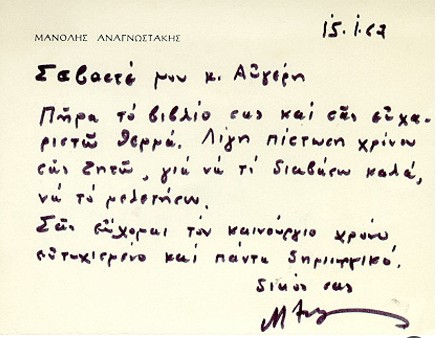 ΜΑΝΟΛΗΣ ΑΝΑΓΝΩΣΤΑΚΗΣ
15.1.62
Σεβαστέ μου κ. Αὐγέρη
Πῆρα τό βιβλίο σας καί σᾶς εὐχα-
ριστῶ θερμά. Λίγη πίστωση χρόνου
σᾶς ζητῶ, γιά νά τό διαβάσω καλά,
νά τό μελετήσω.
Σᾶς εὔχομαι τόν καινούργιο χρόνο
εὐτυχισμένο καί πάντα δημιουργικό.
δικός σας